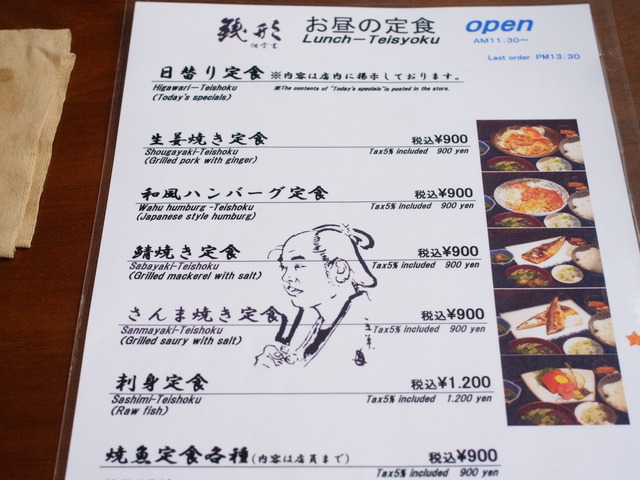 お昼の定食
Lunch-Teisyoku
open
AM11:30~
Last order PM13:30
日替り定食 ※内容は店内に掲示しております。
Higawari-Teishoku ※The contents of "Today's specials"is posted in the store.
(Today's specials)
生姜焼き定食 税込¥900
Shougayaki-Teishoku Tax5% included 900 yen
(Grilled pork with ginger)
和風ハンバーグ定食 税込¥900
Wahu humburg -Teishoku Tax5% included 900 yen
(Japanese style humburg)
鯖焼き定食 税込¥900
Sabayaki-Teishoku Tax5% included 900 yen
(Grilled mackerel with salt)
さんま焼き定食 税込¥900
Sanmayaki-Teishoku Tax5% included 900 yen
(Grilled saury with salt)
刺身定食 税込¥1.200
Sashimi-Teishoku Tax5% included 1.200 yen
(Raw fish)
焼魚定食各種(内容は店員まで) 税込¥900
Tax5% included 900 yen